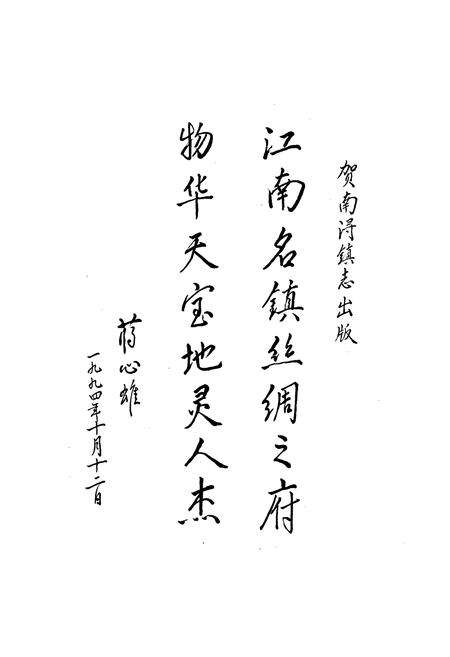 贺南浔鎮志出版
江南名鎮丝绸之府
物华天宝地灵人杰
蒋心雄
一九九四年十月十二日